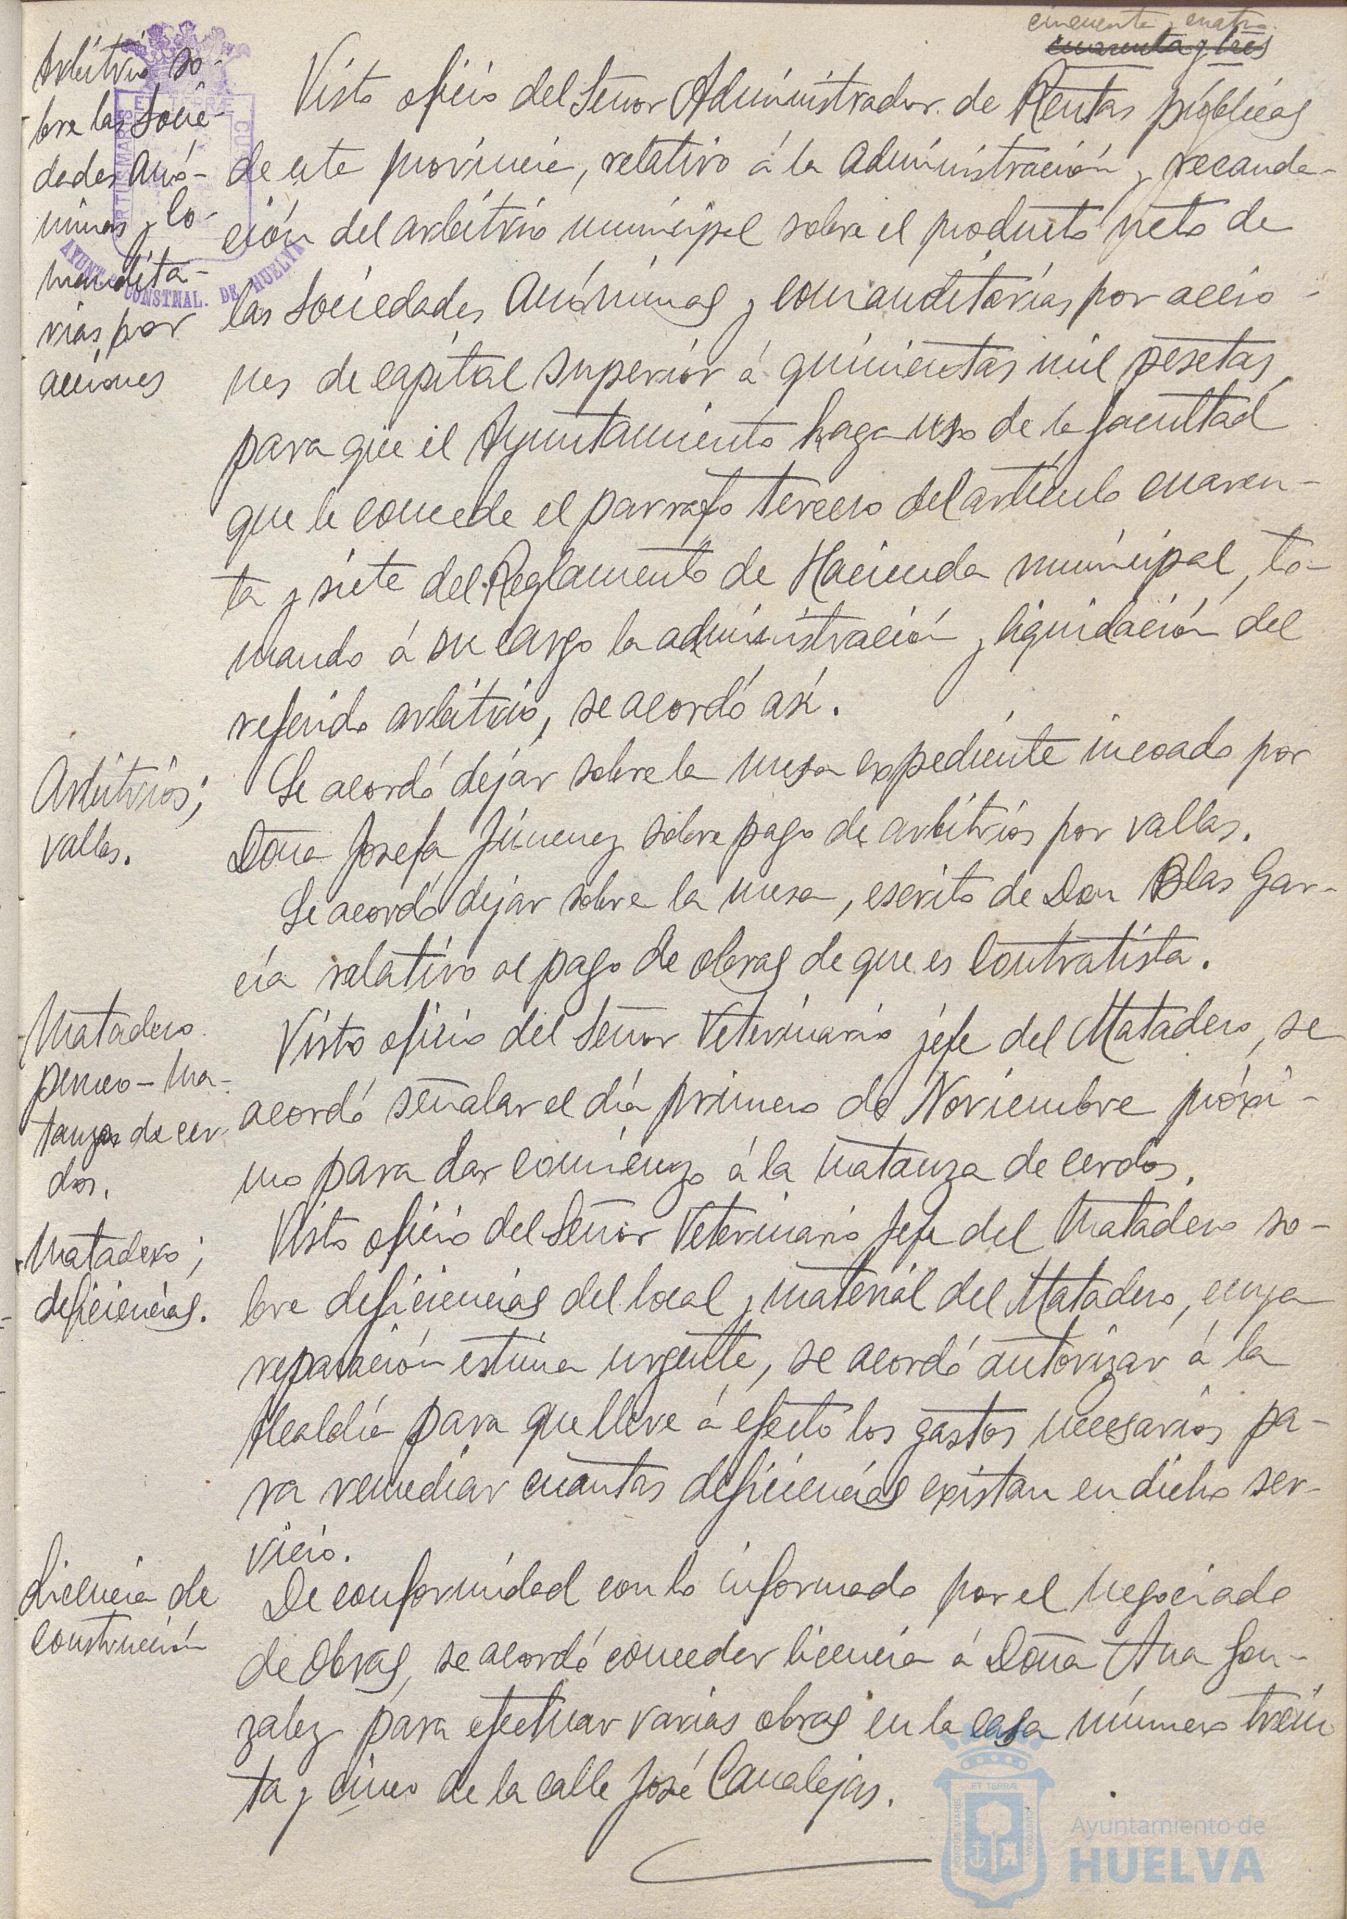 cincuenta y cuatro.
cuarenta y tres
Arbitrio so-
bre las Socie-
dades Anó-
nimas y Co-
mandita-
rias por
acciones
Visto oficio del Señor Administrador de Rentas públicas
de esta provincia, relativo á la administración y recauda-
ción del arbitrio municipal sobre el producto neto de
las Sociedades Anónimas y comanditarias por accio-
nes de capital superior á quinientas mil pesetas,
para que el Ayuntamiento haga uso de la facultad
que le concede el parrafo tercero del artículo cuaren-
ta y siete del Reglamento de Hacienda municipal, to-
mando á su cargo la administración y liquidación del
referido arbitrio, se acordó así.
Arbitrios;
vallas.
Se acordó dejar sobre la mesa expediente incoado por
Doña Josefa Jimenez sobre pago de arbitrios por vallas.
Se acordó dejar sobre la mesa, escrito de Don Blas Gar-
cía relativo al pago de obras de que es Contratista.
Matadero
matanza de cer-
dos.
Visto oficio del Señor Veterinario jefe del Matadero, se
acordó señalar el día primero de Noviembre próxi-
mo para dar comienzo á la matanza de cerdos.
Matadero;
deficiencias.
Visto oficio del Señor Veterinario Jefe del Matadero so-
bre deficiencias del local y material del Matadero, cuya
reparación estima urgente, se acordó autorizar á la
Alcaldía para que lleve á efecto los gastos necesarios pa-
ra remediar cuantas deficiencias existan en dicho ser-
vicio.
Licencia de
construcción
De conformidad con lo informado por el negociado
de Obras, se acordó conceder licencia á Doña Ana Gon-
zalez para efectuar varias obras en la casa número trein
ta y cinco de la calle José Canalejas.
PORTUS MARIS ET TERRE CUSTODIA
AYUNT.º CONSTNAL. DE HUELVA
Ayuntamiento de
HUELVA